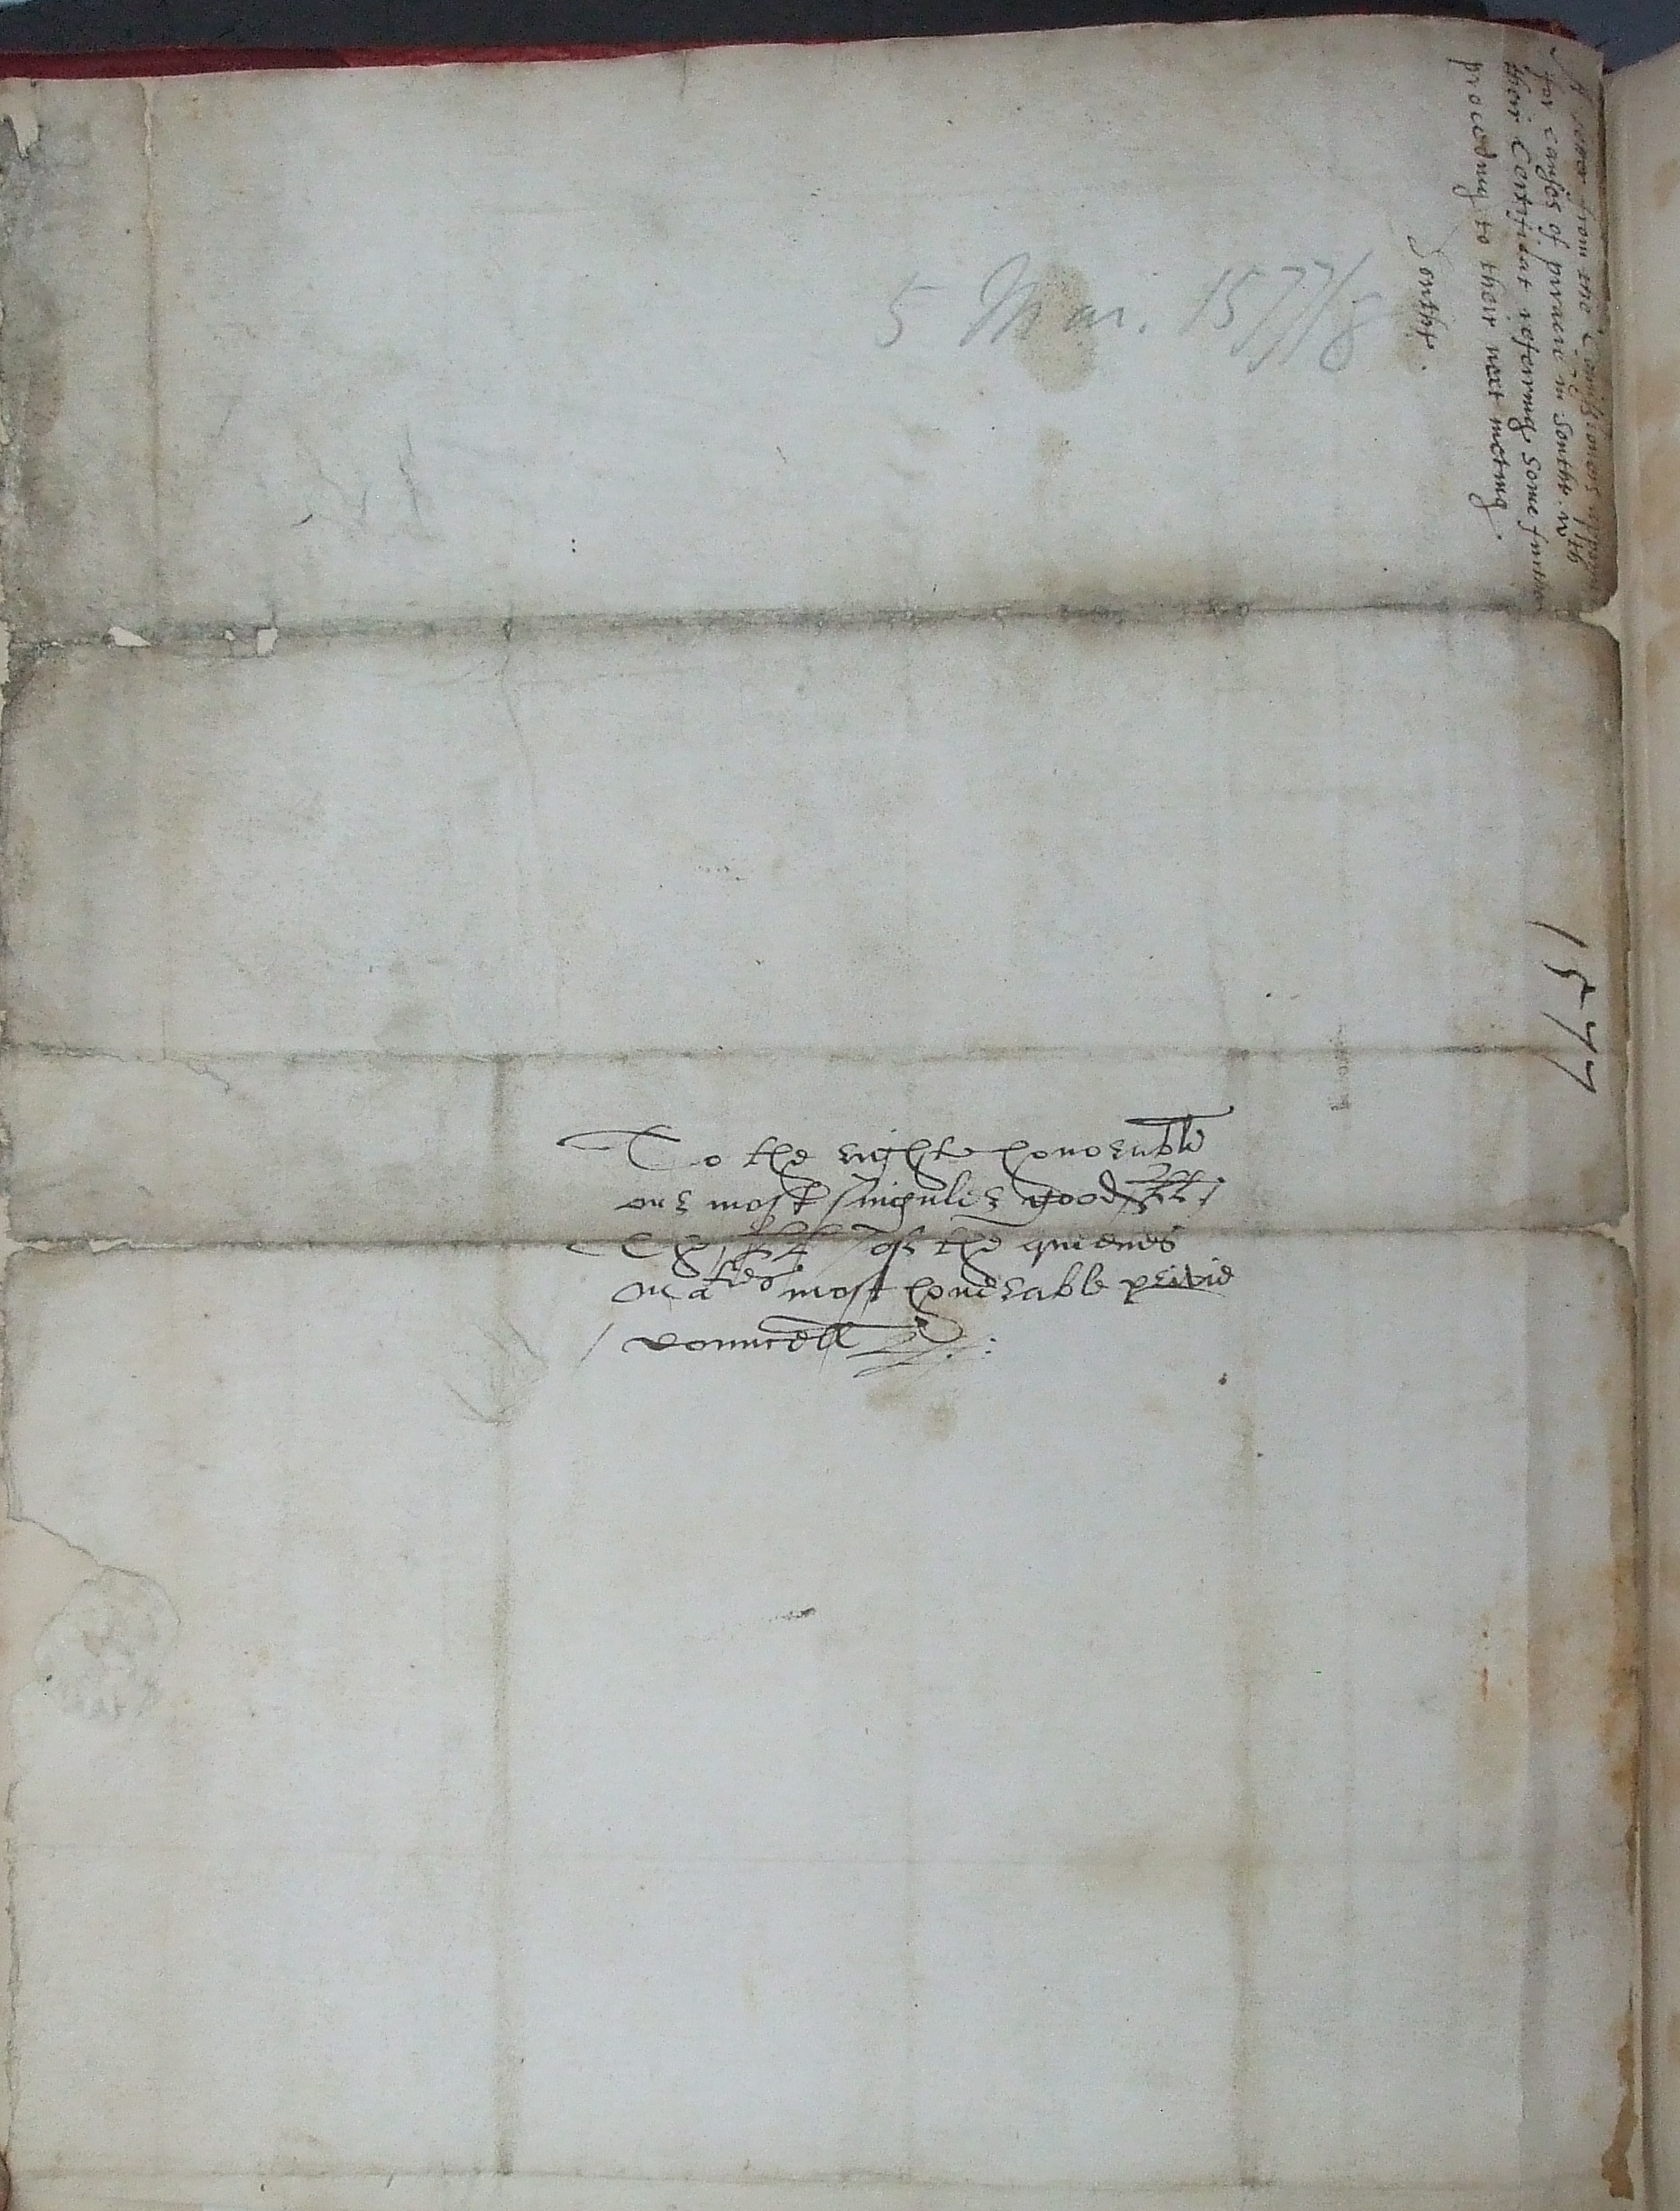 A letter from the Comissioners
for causes of piracie in Southt. wth
their Certificat referring some further
proceding to their next meting.
Southt.
5 Mar. 1577/8
1577
To the right honorable
our most singuler good LL
The LL of the quienes
maties most honerable privie
councell